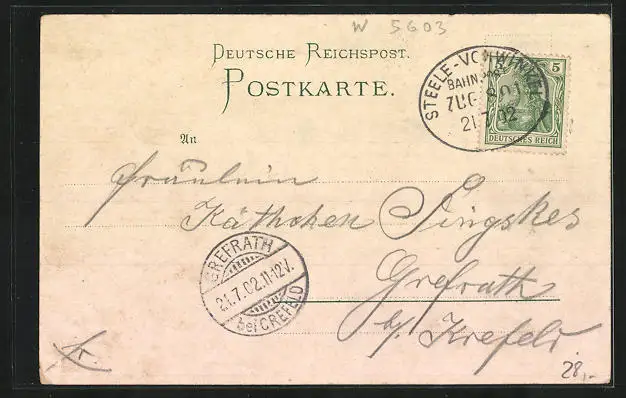 W 5603
DEUTSCHE REICHSPOST.
POSTKARTE.
STEELE-VOHWINKEL
BAHNPOST
ZUG 801
21.7.02
5
DEUTSCHES REICH
An
Fräulein
Käthchen Singskes
GREFRATH
21.7.02.11-12V.
bei CREFELD
Grefrath
b/ Krefeld.
28,-